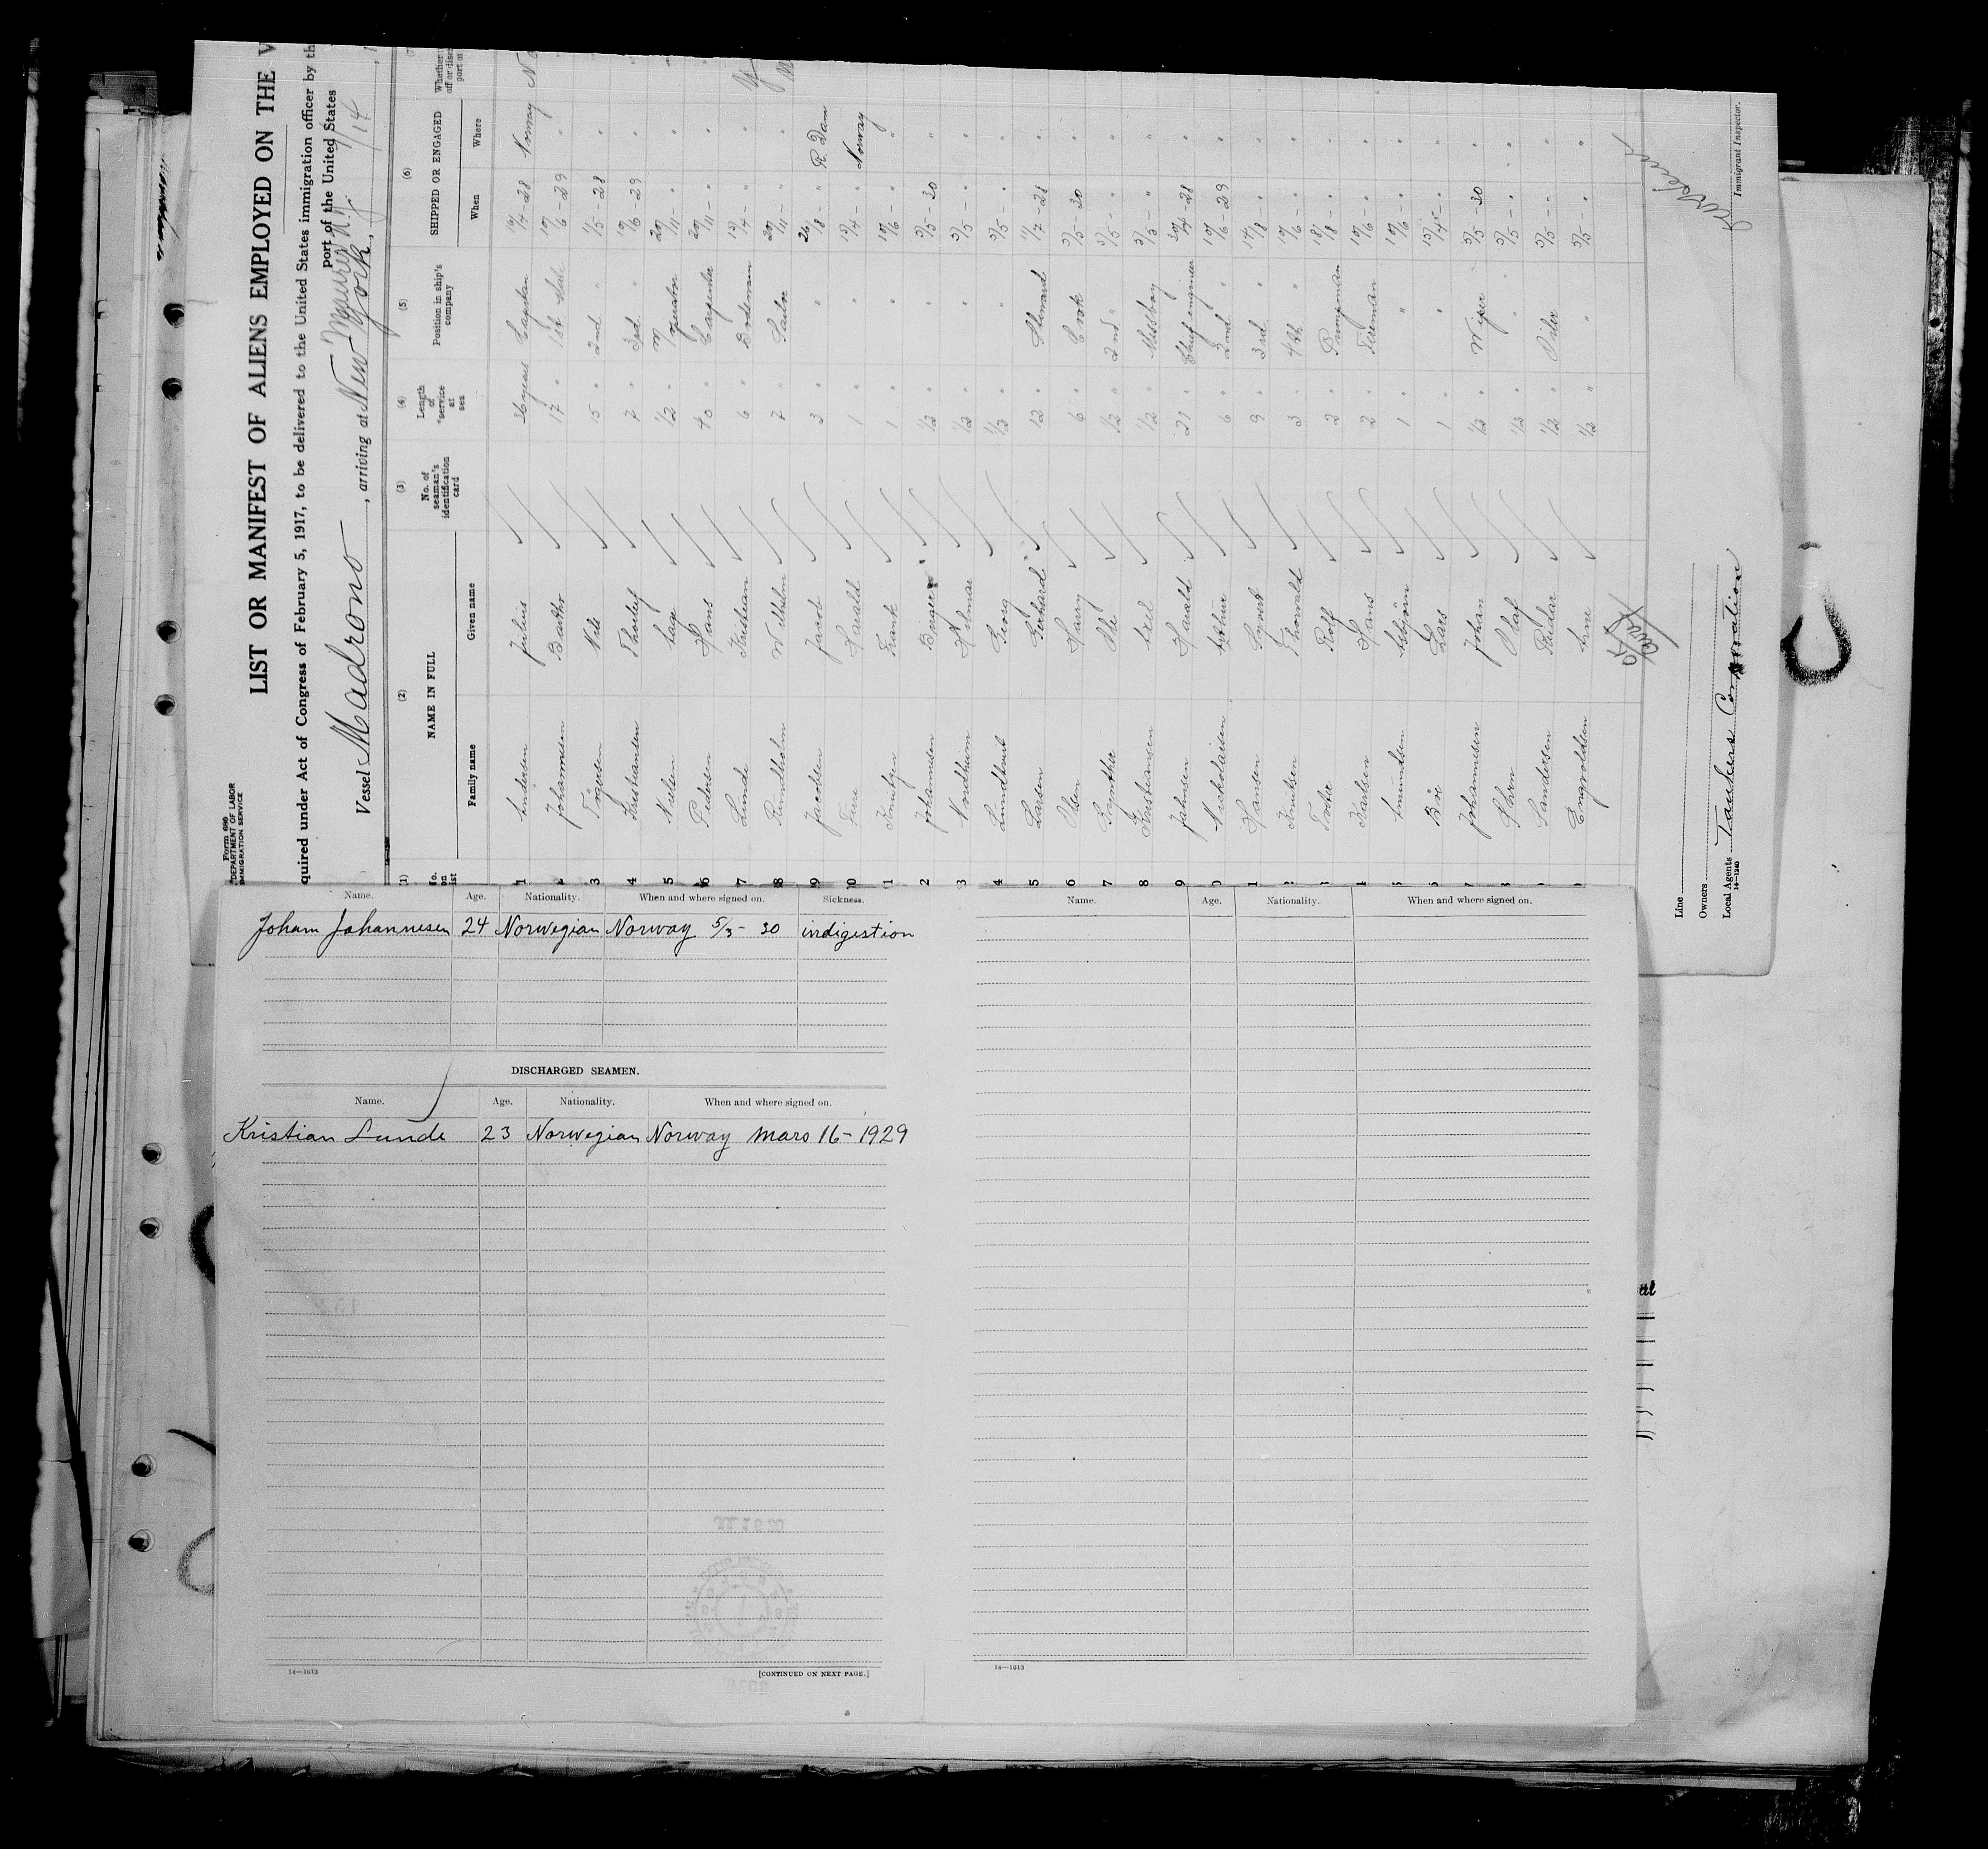 Form 680
DEPARTMENT OF LABOR
IMMIGRATION SERVICE
LIST OR MANIFEST OF ALIENS EMPLOYED ON THE
quired under Act of Congress of February 5, 1917, to be delivered to the United States immigration officer by th
port of the United States
Vessel Madrono, arriving at New York,
(1) (2) (3) (4) (5) (6)
NAME IN FULL
No. of seaman's identification card
Length of service at sea
Position in ship's company
SHIPPED OR ENGAGED
Family name Given name When Where
1 Andersen Julius 36 years Captain 19/4-28 Norway
2 Johannesen 17 " 1st 19/6-29 "
3 Nils 15 " 2nd " 1/5-28 "
4 Kristiansen Thorleif 7 " 3rd " 19/6-29 "
5 Nielsen Aage 1/2 " operator 29/11 - " "
6 Pedersen Hans 40 " Carpenter 29/11 - " "
7 Lunde Kristian 6 " 13/4 - " "
8 Rundholm Wilhelm 7 " Sailor 29/11 - " "
9 Jacobsen Jacob 3 " " 26/8 - " R. Dam
10 Harald 1 " " 13/4 - " Norway
11 Knutzen Frank 1 " " 19/6 - " "
12 Johansen Birger 1/2 " " 5/5-30 "
13 Nordheim Hilmar 1/2 " " 5/5 - " "
14 Georg 1/2 " " 5/5 - " "
15 Larsen Gerhard 12 " Steward 1/7-28 "
16 Olsen Harry 6 " Cook 5/5-30 "
17 Ole 1/2 " 2nd " 5/5 - " "
18 Kristiansen Axel 1/2 " Messboy 5/5 - " "
19 Johnsen Harald 21 " Chief engineer 30/4-28 "
20 Nickolaisen Arthur 6 " 2nd " 19/6-29 "
21 Hansen 9 " 3rd " 14/8 - " "
22 Knutsen Thorvald 3 " 4th " 19/6 - " "
23 Rolf 2 " Pumpman 18/8 - " "
24 Karlsen Hans 2 " Fireman 19/6 - " "
25 Amundsen Asbjörn 1 " " 19/6 - " "
26 Lars 1 " " 13/4 - " "
27 Johannesen Johan 1/2 " Wiper 5/5-30 "
28 Olaf 1/2 " " 5/5 - " "
29 Sandersen Reidar 1/2 " Oiler 5/5 - " "
30 Engvoldsen Arne 1/2 " " 5/5 - " "
Line
Owners
Local Agents Tankers Corporation
14-1240
Immigrant Inspector.
Name. Age. Nationality. When and where signed on. Sickness.
Joham Johannesen 24 Norwegian Norway 5/5- 30 indigestion
DISCHARGED SEAMEN.
Name. Age. Nationality. When and where signed on.
Kristian Lunde 23 Norwegian Norway Mars 16- 1929
14—1613
[CONTINUED ON NEXT PAGE.]
Name. Age. Nationality. When and where signed on.
14—1613